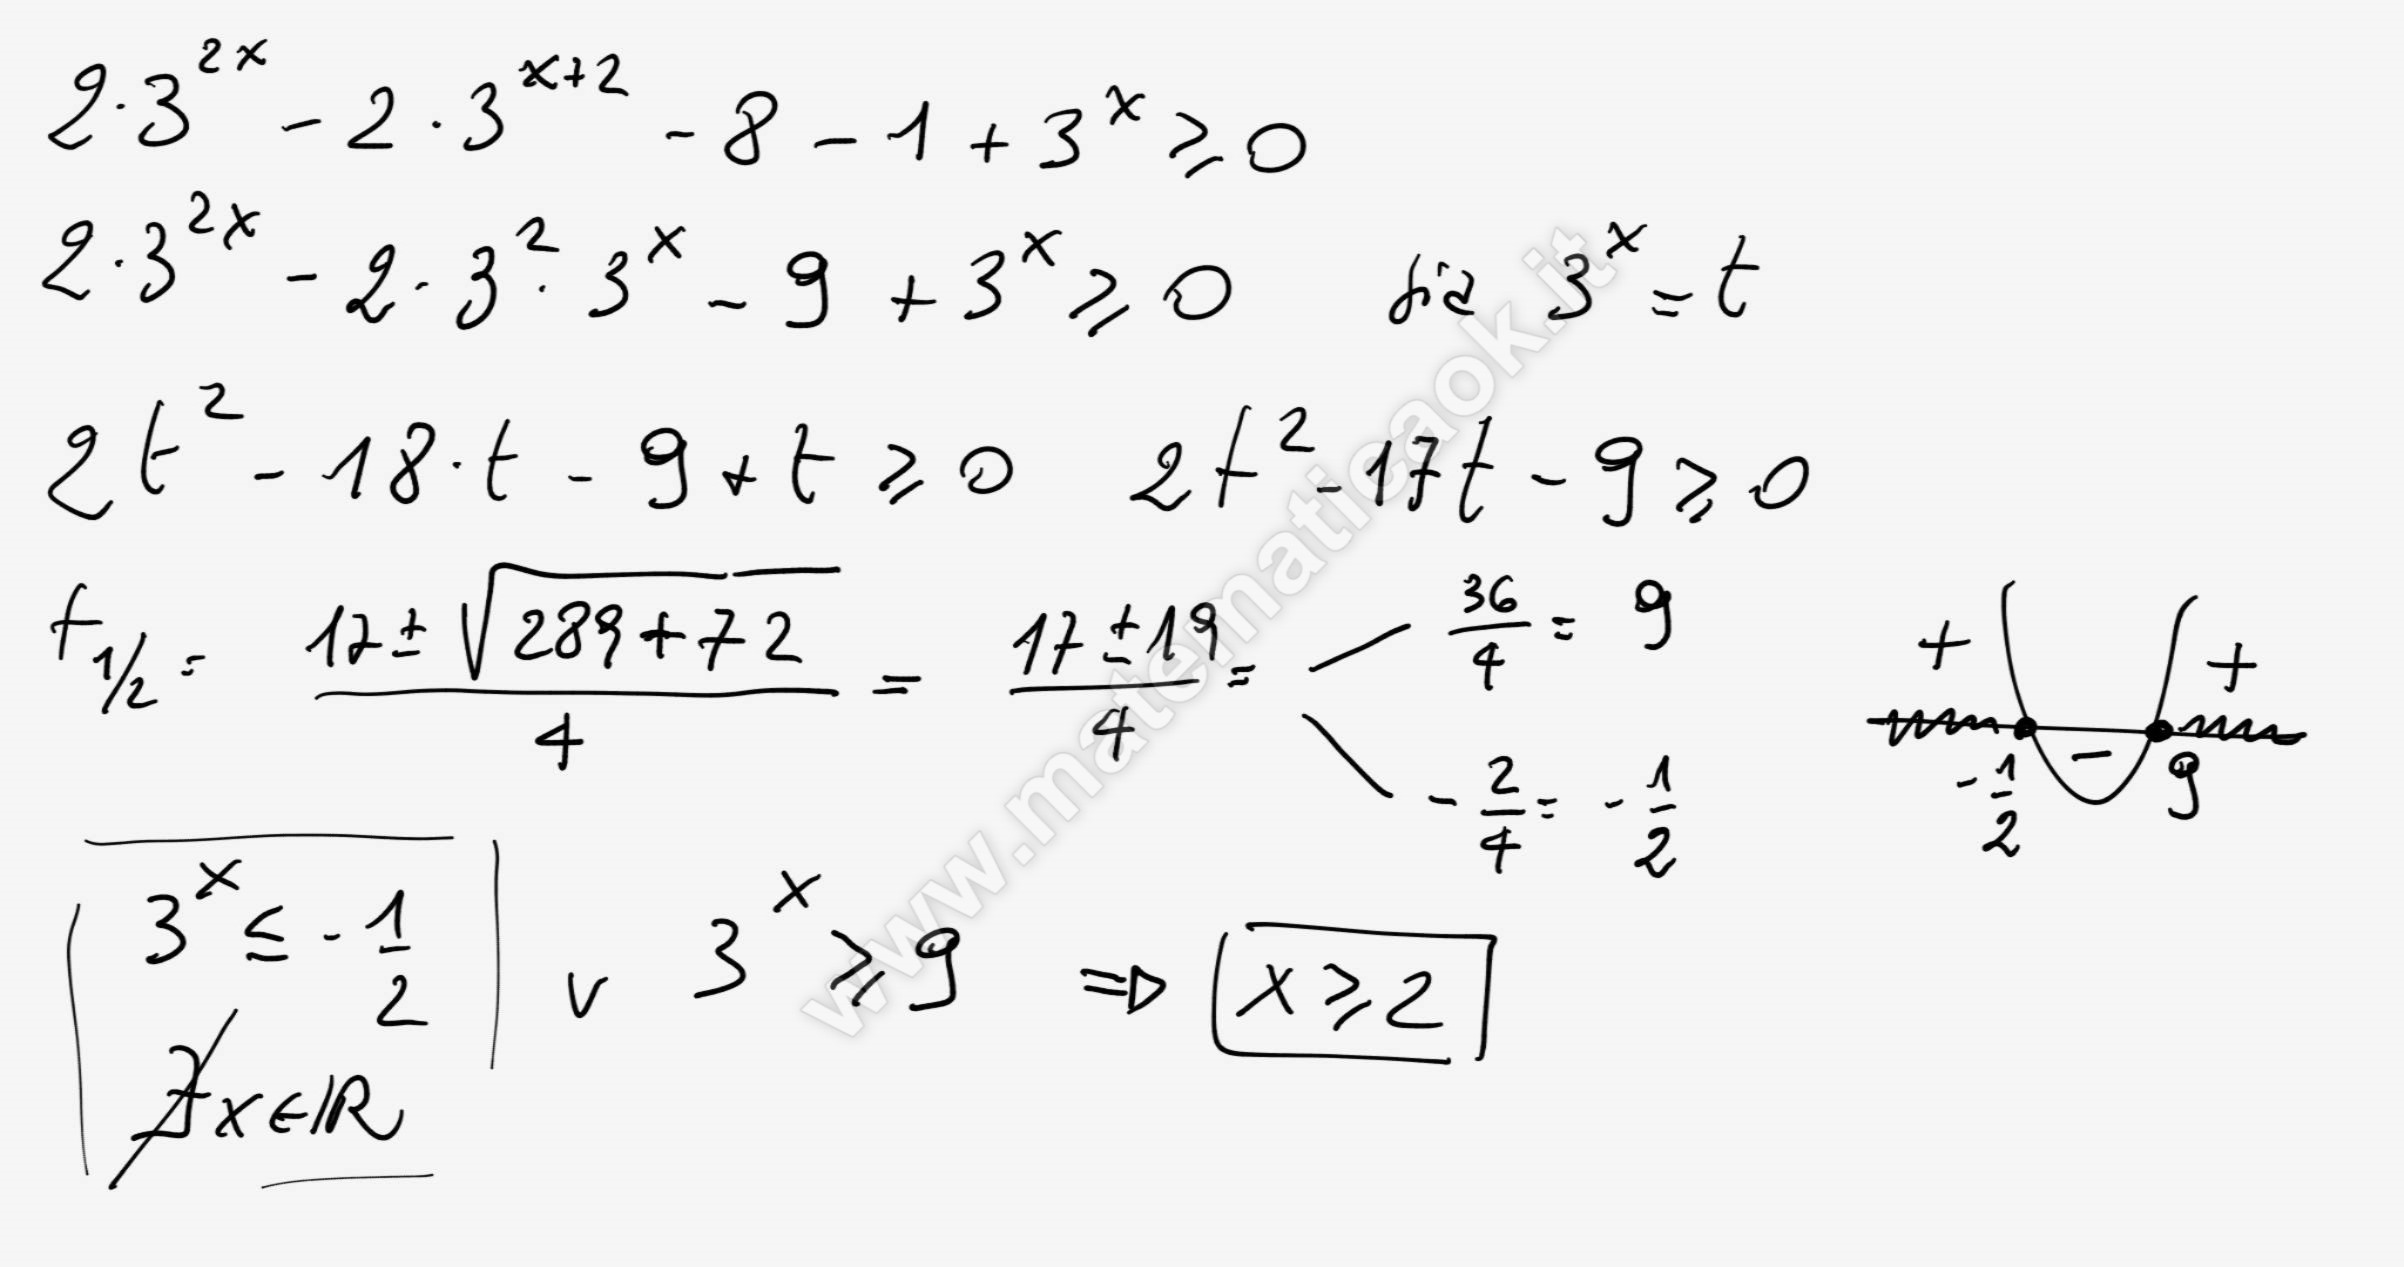 2·3^{2x} - 2·3^{x+2} - 8 - 1 + 3^x ⩾ 0
2·3^{2x} - 2·3^2·3^x - 9 + 3^x ⩾ 0 sia 3^x = t
2t^2 - 18·t - 9 + t ⩾ 0 2t^2 - 17t - 9 ⩾ 0
t_{1/2} = \frac{17 ± \sqrt{289+72}}{4} = \frac{17 ± 19}{4} = \frac{36}{4} = 9
-\frac{2}{4} = -\frac{1}{2}
+ - +
-\frac{1}{2} 9
3^x ≤ -\frac{1}{2} ∨ 3^x ⩾ 9 ⇒ x ⩾ 2
∄ x ∈ ℝ
www.matematicaok.it